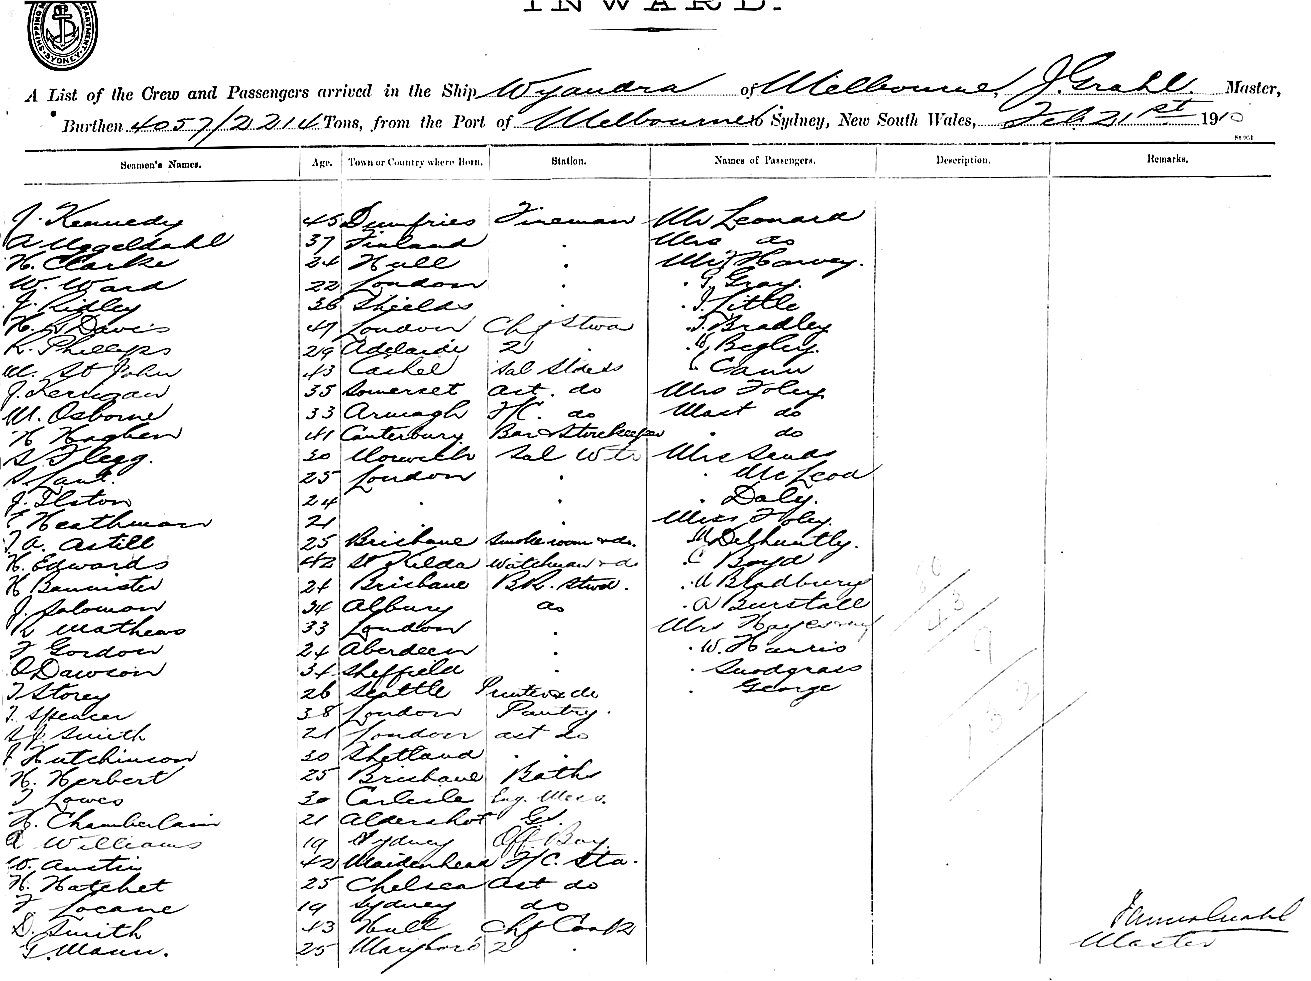 INWARD.
SHIPPING DEPARTMENT. SYDNEY
A List of the Crew and Passengers arrived in the Ship Wyandra of Melbourne, J. Grahl Master,
Burthen 4057/2214 Tons, from the Port of Melbourne to Sydney, New South Wales, Feb. 21st 1910
Seamen's Names. Age. Town or Country where Born. Station. Names of Passengers. Description. Remarks.
J. Kennedy 45 Dumfries Fireman Mr Leonard
A Uggeldahl 37 Finland . Mrs do
H. Clarke 24 Hull . Harvey.
W. Ward 22 London . Gray.
J. Ridley 36 Shields . Little
Davis 47 London Chf Stwd Bradley
R. Phillips 29 Adelaide 2 . Begley.
M. St John 43 Cashel Sal Stdess Cann
J. Kerrigan 35 Somerset ast. do Mrs Foley
M. Osborne 33 Armagh F/C. do Mast do
H Haghen 41 Canterbury Bar & Storekeeper . do
S. Flegg. 30 Norwich Sal Wtr Mrs Sands
S 25 London . . McLeod
J. Ilston 24 . . . Daly.
Heathman 21 . Miss Foley.
J A. Astill 25 Brisbane Smokeroom & do. M Delhuntly.
H. Edwards 42 St Kilda Watchman & do C Boyd
H Bannister 24 Brisbane B.R. Stwd. . A Bradbury
J. Solomon 34 Albury do . A Burstall
R Mathews 33 London . Mrs
F Gordon 24 Aberdeen . . W. Harris
O Dawson 34 Sheffield . . Snodgrass
T Storey 26 Seattle Printer & do . George
T. Spencer 38 London Pantry.
S J Smith 21 London ast do
J Hutchinson 30 Shetland . .
H. Herbert 25 Brisbane Baths
T Lowes 30 Carlisle Eng. Mess.
H. Chamberlain 21 Aldershot G.
A Williams 19 Sydney Off Boy.
W. Austin 42 Maidenhead F/C. Std.
H. Hatchet 25 Chelsea ast do
F Locane 19 Sydney do
D. Smith 43 Hull Chf Cook
G. Mann. 25 Maryboro 2 .
43
9
132
James Grahl
Master